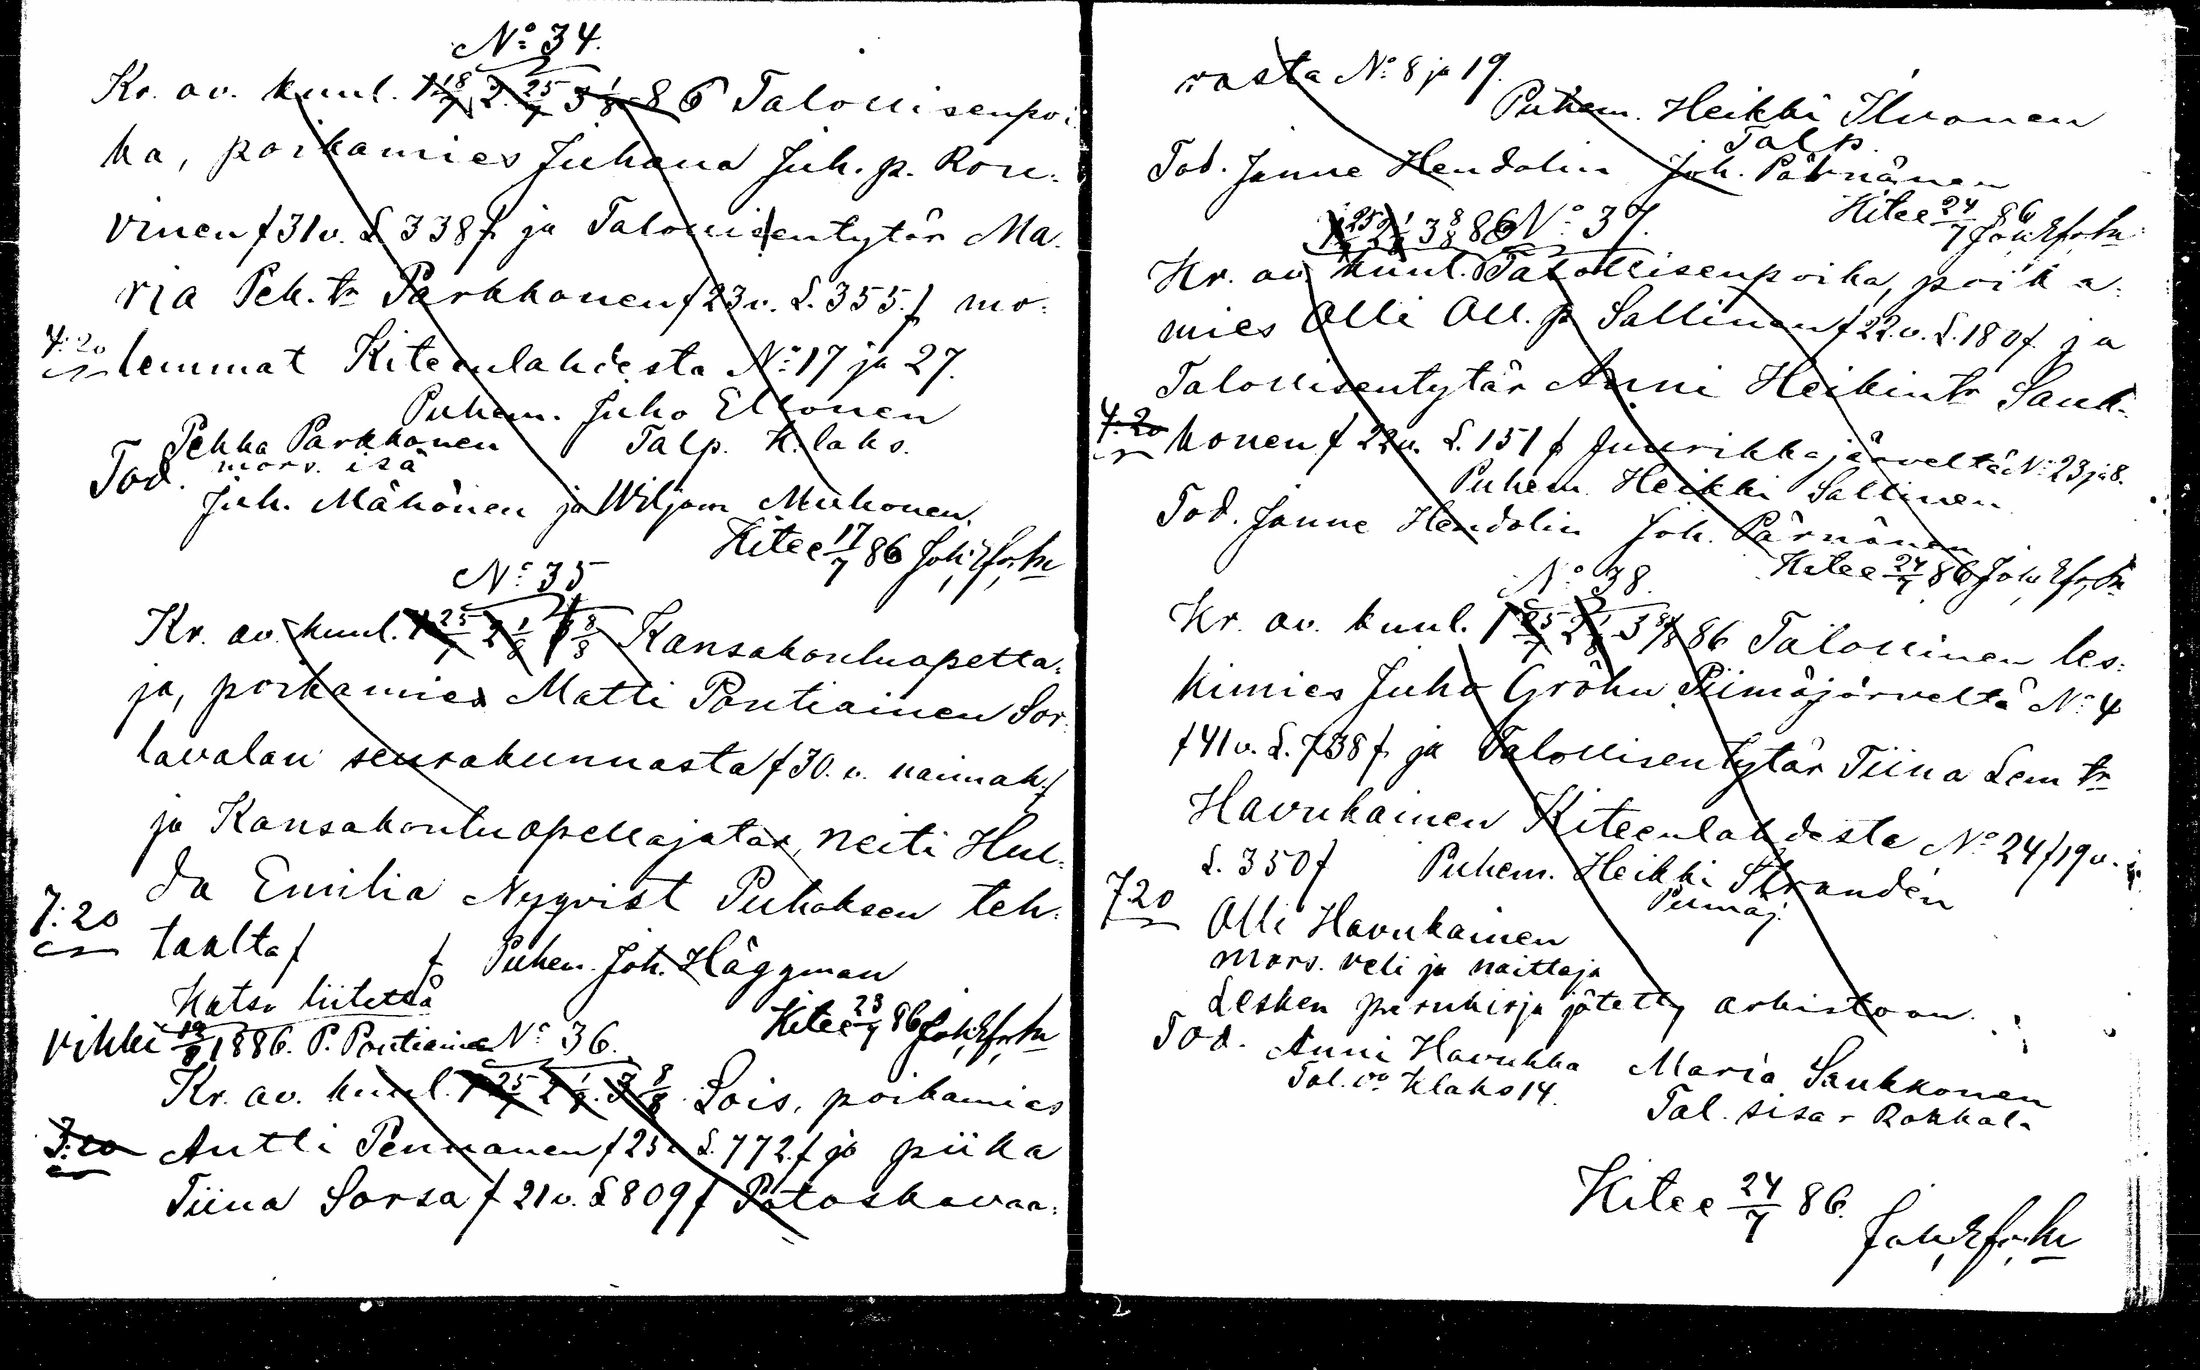 No 34.
Kr. av. kuul. 1 18/7 2. 25/7 3 1/8 86 Talollisenpoi
ka, poikamies Juhana Juh. p. Rou-
vinen f 31 v. L 338 f ja Talollisentytär Ma-
ria Pek. tr Parkkonen f 23 v. L. 355. f mo-
7:20
lemmat Kiteenlahdesta No 17 ja 27.
Puhem. Juho Ellonen
Pekka Parkkonen Talp. K. laks.
mors. isä
Tod.
Juh. Mähönen ja Wiljam Muhonen.
Kitee 17/7 86
No 35
Kr. av. kuul. 1 25/7 2 1/8 3 8/8 Kansakouluopetta-
ja, poikamies Matti Pontiainen Sor-
tavalan seurakunnasta f 30. v. naimat. f
ja Kansakouluopettajatar, neiti Hul-
da Emilia Nyqvist Puhoksen teh-
7:20
taalta f f Puhem. Joh. Häggman
Katso liitettä
Kitee 23/7 86
vihki 12/8 1886. P. Pontiainen
No 36.
Kr. av. kuul. 1 25/7 2 1/8. 3 8/8 Lois. poikamies
Antti Pennanen f 25 v L. 772. f ja piika
Tiina Sorsa f 21 v. L 809 f Potoskavaa-
rasta No 8 ja 19.
Puhem. Heikki Ihvonen
Talp.
Tod. Janne Hendolin Joh. Pärnänen
Kitee 24/7 86
1 25/7 2 1/8 3 8/8 86 No 37.
Kr. av. kuul. Talollisenpoika, poika-
mies Olli Oll. p Sallinen f 22 v. L. 180 f. ja
Talollisentytär Anni Heikintr Sauk-
7:20
konen f 22 v. L. 151 f Juurikkajärveltä No 23 ja 8.
Puhem. Heikki Sallinen
Tod. Janne Hendolin Joh. Pärnänen
Kitee 24/7 86
No 38.
Kr. av. kuul. 1 25/7 2 1/8 3 8/8 86 Talollinen les-
kimies Juho Gröhn Piimäjärveltä No 4
f 41 v. L. 738 f ja Talollisentytär Tiina Lem tr
Havukainen Kiteenlahdesta No 24 f 19 v.
L. 350 f Puhem. Heikki Strandén
Piimäj.
7.20
Olli Havukainen
mors. veli ja naittaja
Lesken perukirja jätetty arkistoon.
Tod. Anni Havukka Maria Saukkonen
Tal. vo Klaks 14. Tal. sisar Rokkala
Kitee 24/7 86.